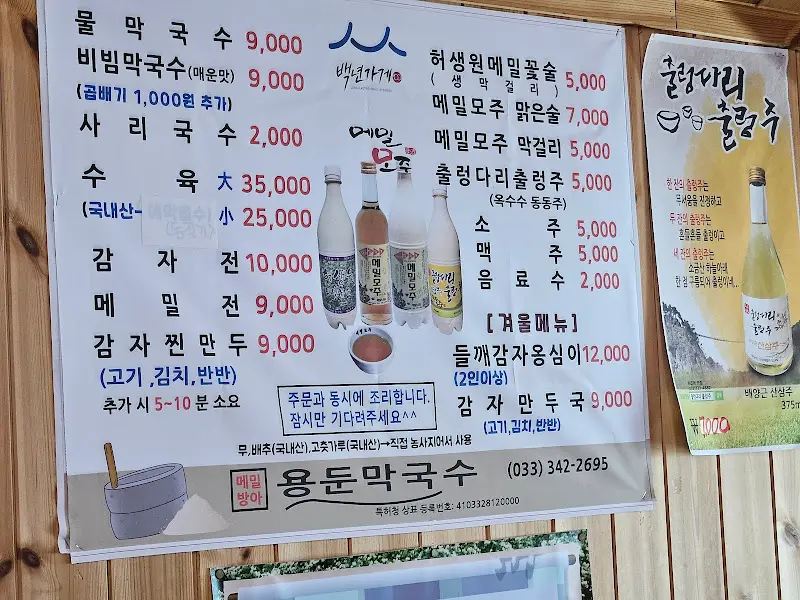 물막국수 9,000
비빔막국수(매운맛) 9,000
(곱배기 1,000원 추가)
사리국수 2,000
수육 大 35,000
(국내산- 小 25,000
감자전 10,000
메밀전 9,000
감자찐만두 9,000
(고기,김치,반반)
추가 시 5~10 분 소요
백년가게
메밀
모주
허생원메밀꽃술 5,000
(생막걸리)
메밀모주 맑은술 7,000
메밀모주 막걸리 5,000
출렁다리출렁주 5,000
(옥수수 동동주)
소주 5,000
맥주 5,000
음료수 2,000
[겨울메뉴]
들깨감자옹심이 12,000
(2인이상)
감자만두국 9,000
(고기,김치,반반)
주문과 동시에 조리합니다.
잠시만 기다려주세요^^
무,배추(국내산),고춧가루(국내산)→직접 농사지어서 사용
메밀
방아
용둔막국수
(033) 342-2695
특허청 상표 등록번호: 4103328120000
출렁다리
출렁주
한 잔의 출렁주는
무서움을 진정하고
두 잔의 출렁주는
흔들흔들 출렁이고
세 잔의 출렁주는
소금산 하늘아래
한 점 구름되어 출렁이네...
배양근 산삼주
375m
₩7,000